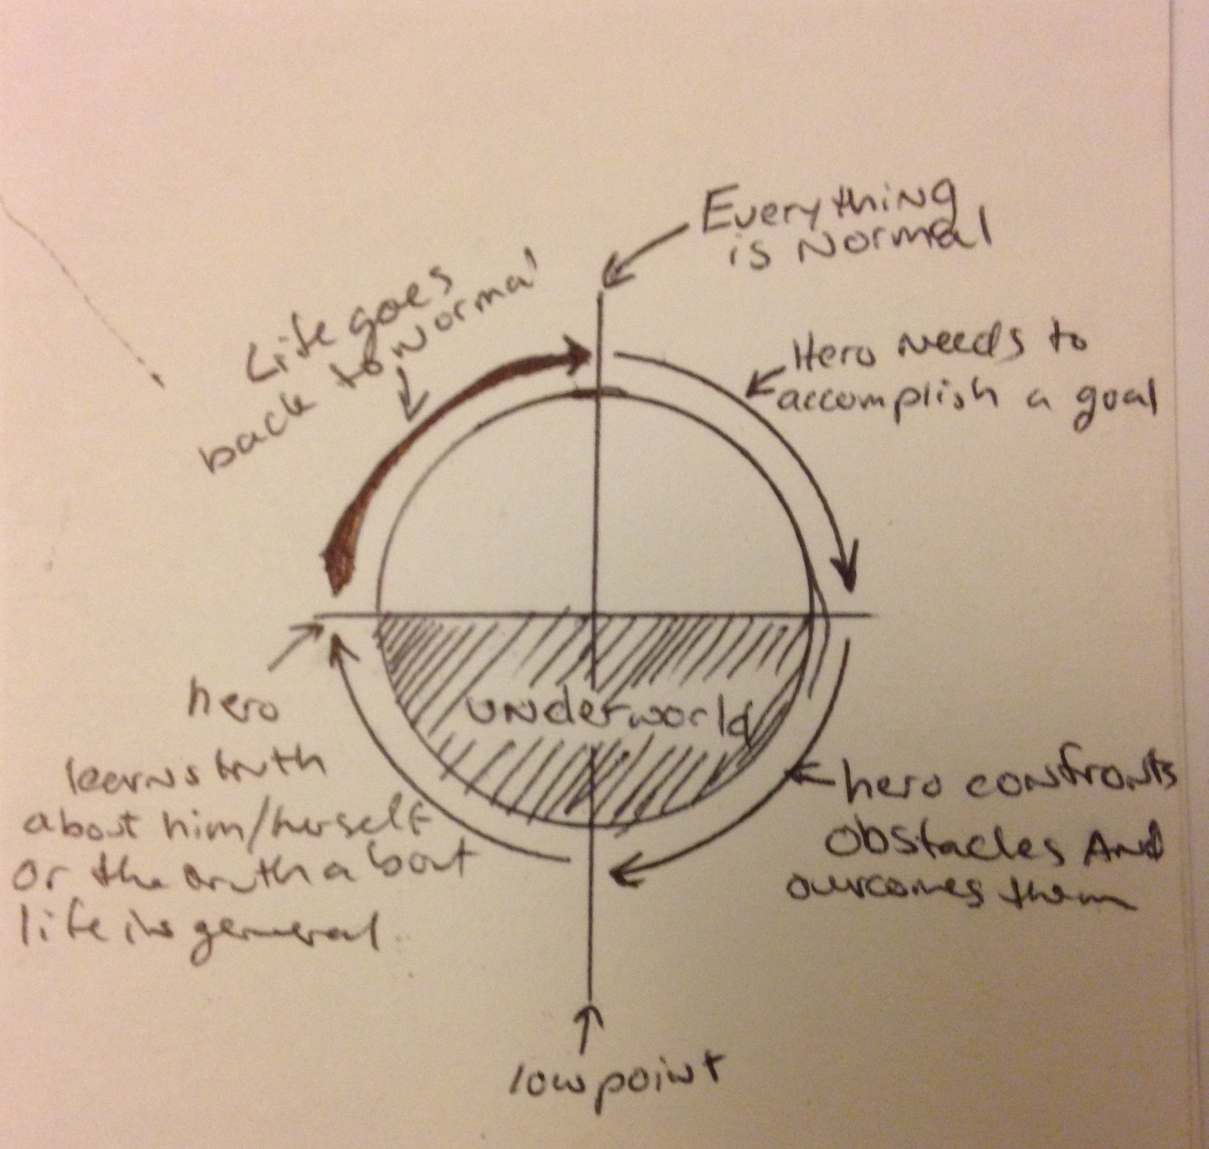 Everything
is Normal
Life goes
back to Normal
Hero Needs to
accomplish a goal
underworld
hero
learns truth
about him/herself
or the truth about
life in general
hero confronts
obstacles And
overcomes them
low point